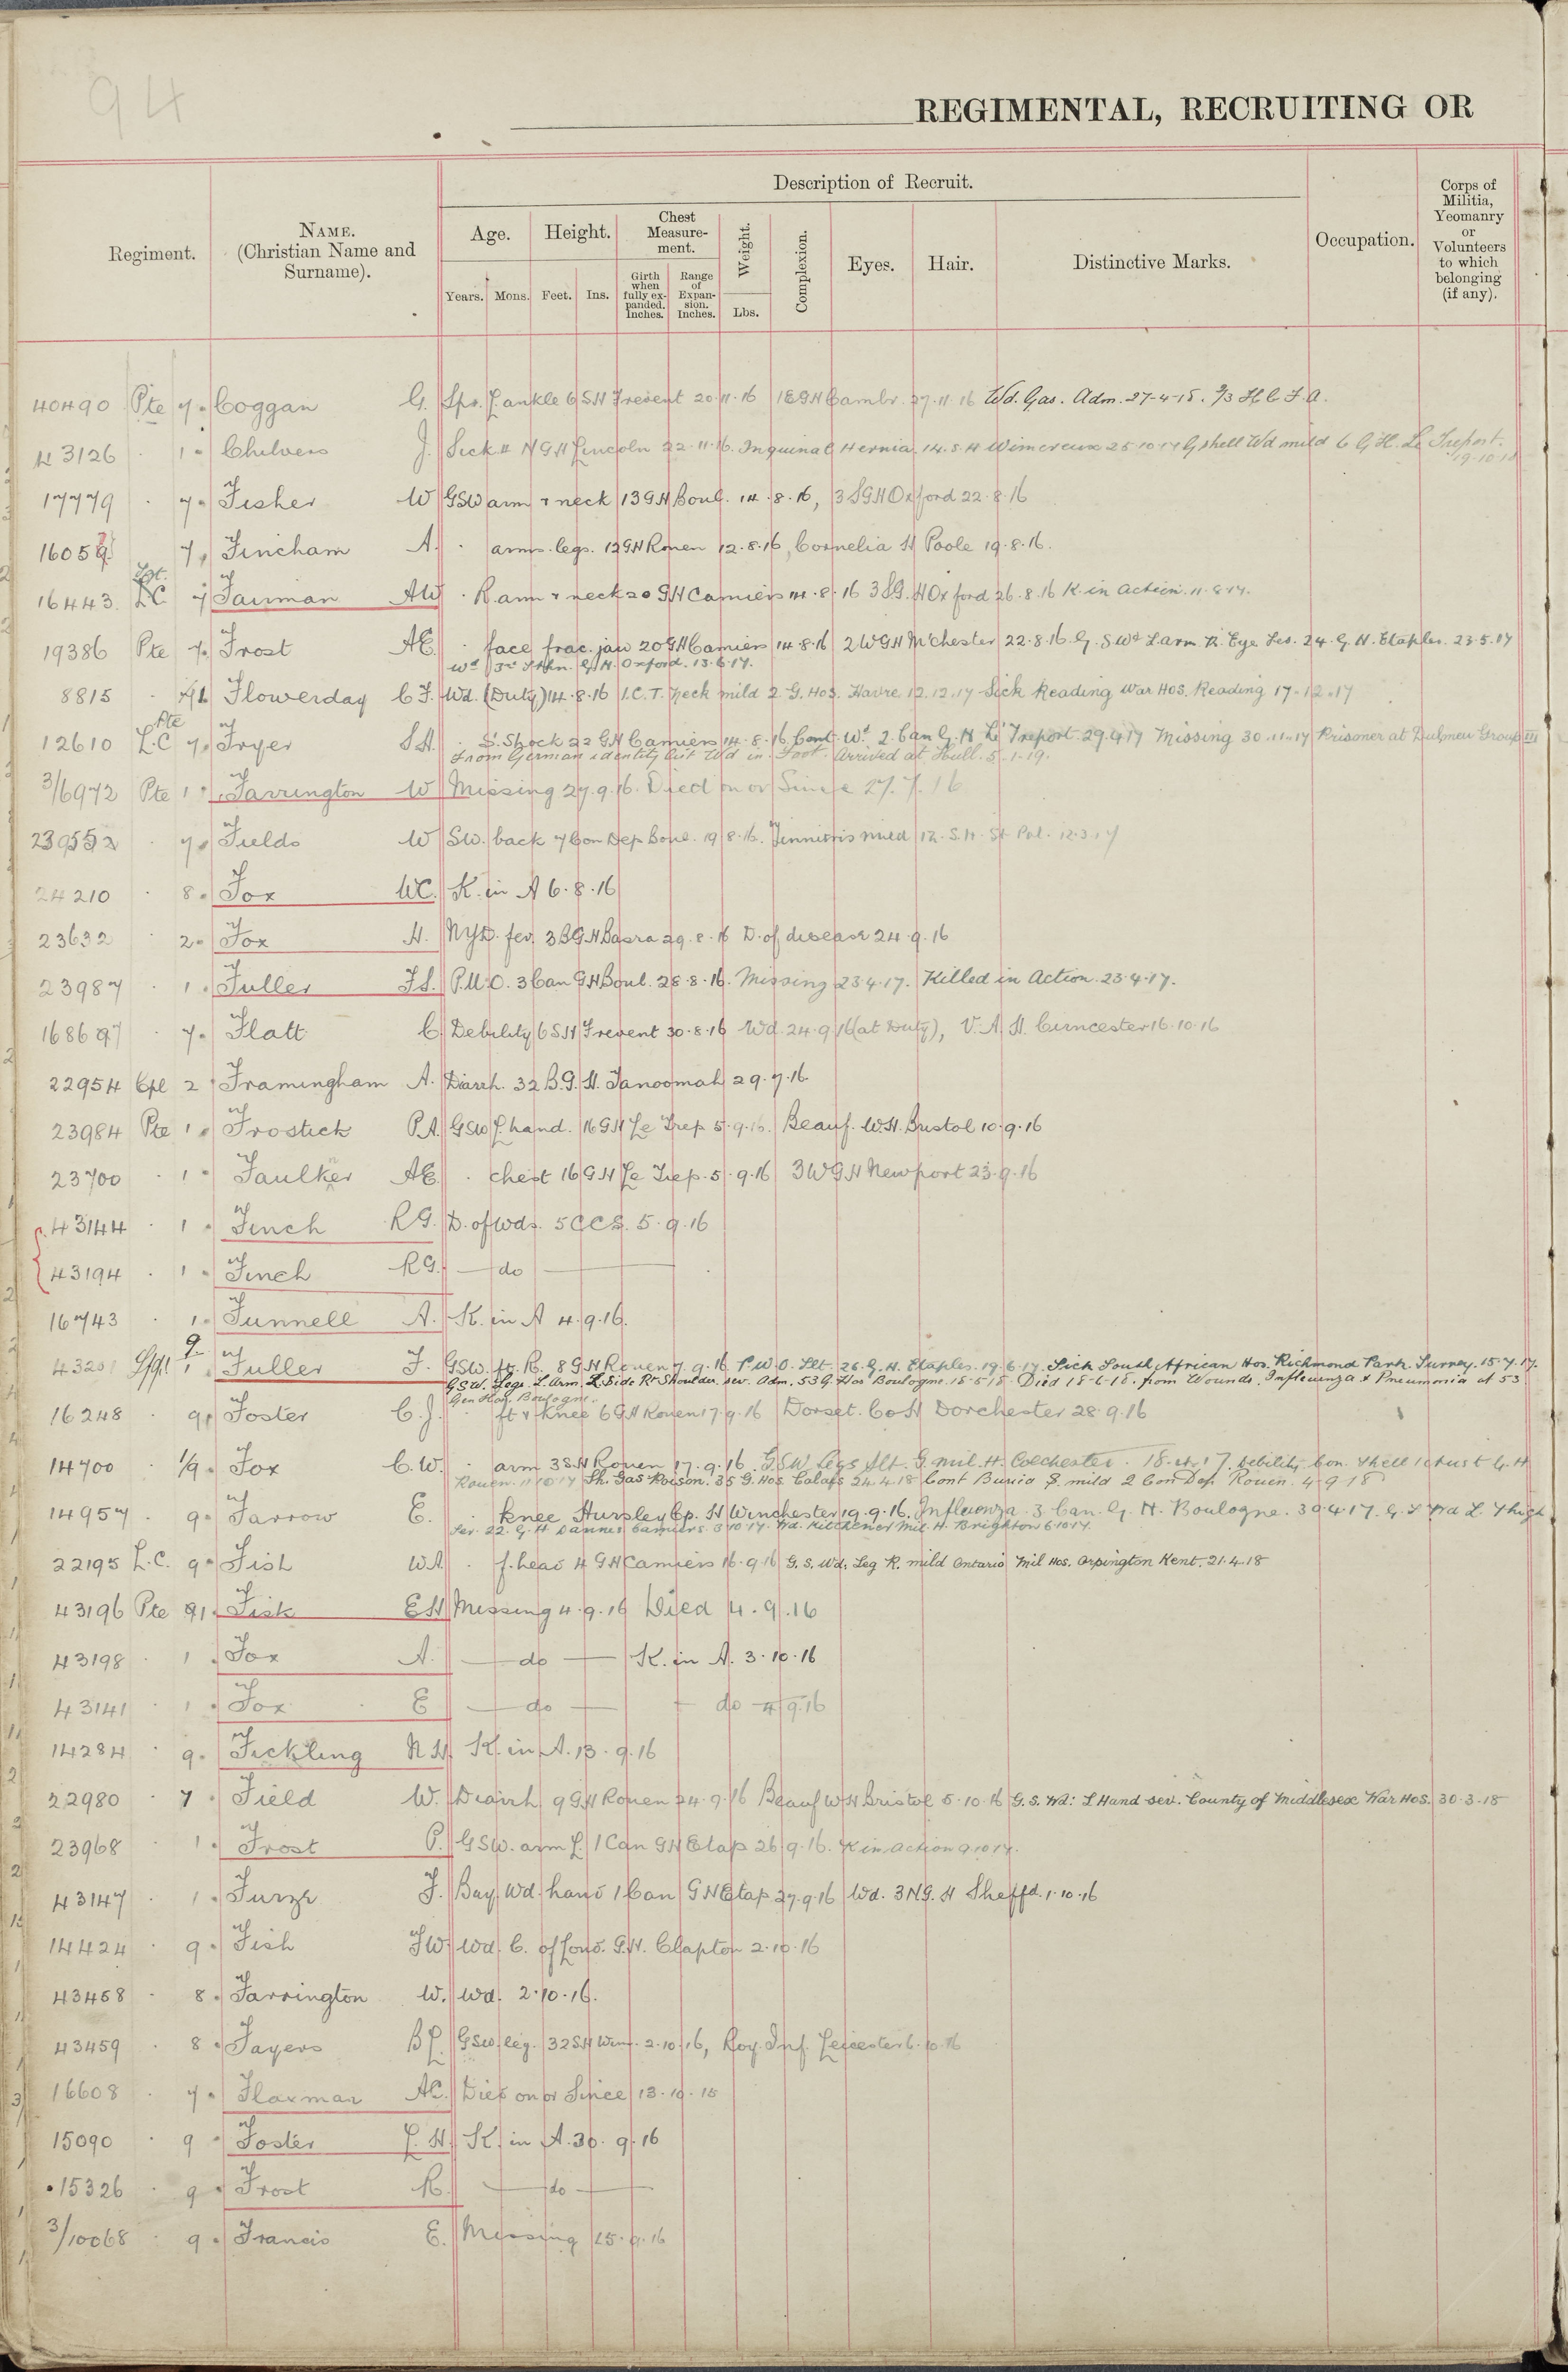 94
REGIMENTAL, RECRUITING OR
Description of Recruit.
Regiment.
NAME.
(Christian Name and
Surname).
Age.
Height.
Chest
Measure-
ment.
Weight.
Complexion.
Eyes.
Hair.
Distinctive Marks.
Occupation.
Corps of
Militia,
Yeomanry
or
Volunteers
to which
belonging
(if any).
Years.
Mons.
Feet.
Ins.
Girth
when
fully ex-
panded.
Inches.
Range
of
Expan-
sion.
Inches.
Lbs.
40490 Pte 7 Coggan G. Spr. L ankle 6 SH Frevent 20.11.16 1EGH Cambr. 27.11.16 Wd. Gas. Adm. 27-4-18.
43126 1 Chilvers J. Sick 4 NGH Lincoln 22.11.16. Inguinal Hernia 14.S.H Wimereux 25.10.17 G shell Wd mild 6 G.H. Le Treport.
19.10.18
17779 7 Fisher W GSW arm & neck 13GH Boul. 14.8.16, 3SGH Oxford 22.8.16
7 Fincham A. arms. legs. 12GH Rouen 12.8.16, Cornelia H Poole 19.8.16.
16443 7 Fairman AW R arm & neck 20 GH Camiers 14.8.16 3SG.H Oxford 26.8.16 K in action. 11.8.17.
19386 Pte 7 Frost AE. face frac. jaw 20GH Camiers 14.8.16 2WGH M'Chester 22.8.16. G.S.Wd L arm R. Eye Les. 24.G.H. Etaples. 23.5.17
Wd 3rd Sthn. G.H. Oxford. 13.6.17.
8815 Flowerday C F. Wd. (Duty) 14.8.16 I.C.T. neck mild 2.G.Hos. Havre 12.12.17 Sick Reading War Hos. Reading 17-12-17
Pte
12610 L.C 7 Fryer S H. S. Shock 22 GH Camiers 14.8.16 Cont Wd 2.Can G.H. Le Treport 29.4.17 Missing 30.11.17 Prisoner at Dulmen Group III
From German identity list Wd in Foot. Arrived at Hull. 5.1.19.
3/6972 Pte 1 Farrington W Missing 27.9.16. Died on or Since 27.7.16
7 Fields W SW. back 7 Con Dep Boul. 19.8.16. mild 12.S.H. St Pol. 12.3.17
24210 8 Fox WC. K. in A 6.8.16
23632 2 Fox H. NYD. fev. 3BGH Basra 29.8.16 D. of disease 24.9.16
23987 1 Fuller F S. P.U.O. 3 Can GH Boul. 28.8.16. Missing 23.4.17. Killed in Action. 23.4.17.
7 Flatt C. Debility 6SH Frevent 30.8.16 Wd. 24.9.16 (at Duty), V.A.H. Cirencester 16.10.16
22954 Cpl 2 Framingham A. Diarrh. 32 B.G.H. Tanoomah 29.7.16
23984 Pte 1 Frostick P.A. GSW L hand. 16GH Le Trep 5.9.16. Beauf. WH. Bristol 10.9.16
23700 1 Faulker AE. chest 16GH Le Trep. 5.9.16 3WGH Newport 23.9.16
43144 1 Finch R G. D. of wds. 5CCS. 5.9.16
43194 1 Finch R G. do
16743 1 Funnell A. K. in A 4.9.16.
9
1 Fuller F. GSW. ft. R. 8GH Rouen 7.9.16 P.U.O. Slt. 26.G.H. Etaples. 19.6.17. Sick South African Hos. Richmond Park. Surrey. 15.7.17.
GSW. Legs. L Arm. L Side Rt Shoulder. sev. Adm. 53 G. Hos Boulogne 18-5-18. Died 18-6-18. from Wounds. Influenza & Pneumonia at 53
Gen Hos. Boulogne.
16248 9 Foster C.J. ft & knee 6GH Rouen 17.9.16 Dorset. Co H Dorchester 28.9.16
14700 1/9 Fox C.W. arm 3SH Rouen 17.9.16. GSW Legs Slt. G. Mil. H. Colchester. Debility
Rouen Sh. Gas Poison. 35 G. Hos. Calais 24.4.18 mild 2 Con Dep. Rouen. 4.9.18
14957 9 Farrow E. knee Hursley Cp. H Winchester 19.9.16. Influenza. 3 Can. G.H. Boulogne. 30.4.17. G.S. Wd L. Thigh
Sev. 22.G.H. Dannes Camiers 3.10.17. Wd. Kitchener Mil. H. Brighton 6.10.17.
22195 L.C. 9 Fish W A. f.head 4 GH Camiers 16.9.16 G.S. Wd. Leg R. mild Ontario Mil Hos. Orpington Kent. 21.4.18
43196 Pte 91 Fisk E H Missing 4.9.16 Died 4.9.16
43198 1 Fox A. do K. in A. 3.10.16
43141 1 Fox E do do 4.9.16
14284 9 Fickling N H. K. in A. 13.9.16
22980 7 Field W. Diarrh 9GH Rouen 24.9.16 Beauf WH Bristol 5.10.16 G.S. Wd: L Hand sev. County of Middlesex War Hos. 30-3-18
23968 1 Frost P. GSW. arm L. 1 Can GH Etap 26.9.16. K in action 9.10.17.
43147 1 Furze F. Bay. Wd. hand 1 Can GH Etap 27.9.16 Wd. 3NG.H Sheffd. 1.10.16
14424 9 Fish F W. Wd. C. of Lond. G.H. Clapton 2.10.16
43458 8 Farrington W. Wd. 2.10.16.
43459 8 Fayers B L. GSW leg. 32SH Wim. 2.10.16, Roy. Inf. Leicester 6.10.16
16608 7 Flaxman AC. Died on or Since 13.10.15
15090 9 Foster L.H. K. in A. 30.9.16
15326 9 Frost R. do
3/10068 9 Francis E. Missing 15.9.16